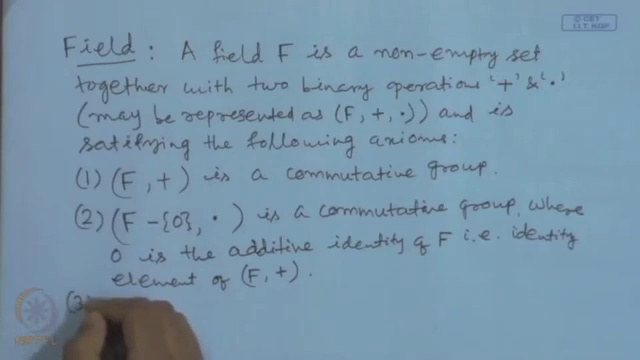 © CET
I.I.T. KGP
Field : A field F is a non-empty set
together with two binary operations '+' & '·'
(may be represented as (F, +, ·)) and is
satisfying the following axioms:
(1) (F, +) is a commutative group.
(2) (F - {0}, ·) is a commutative group, where
0 is the additive identity of F i.e. identity
element of (F, +).
(3)
NPTEL